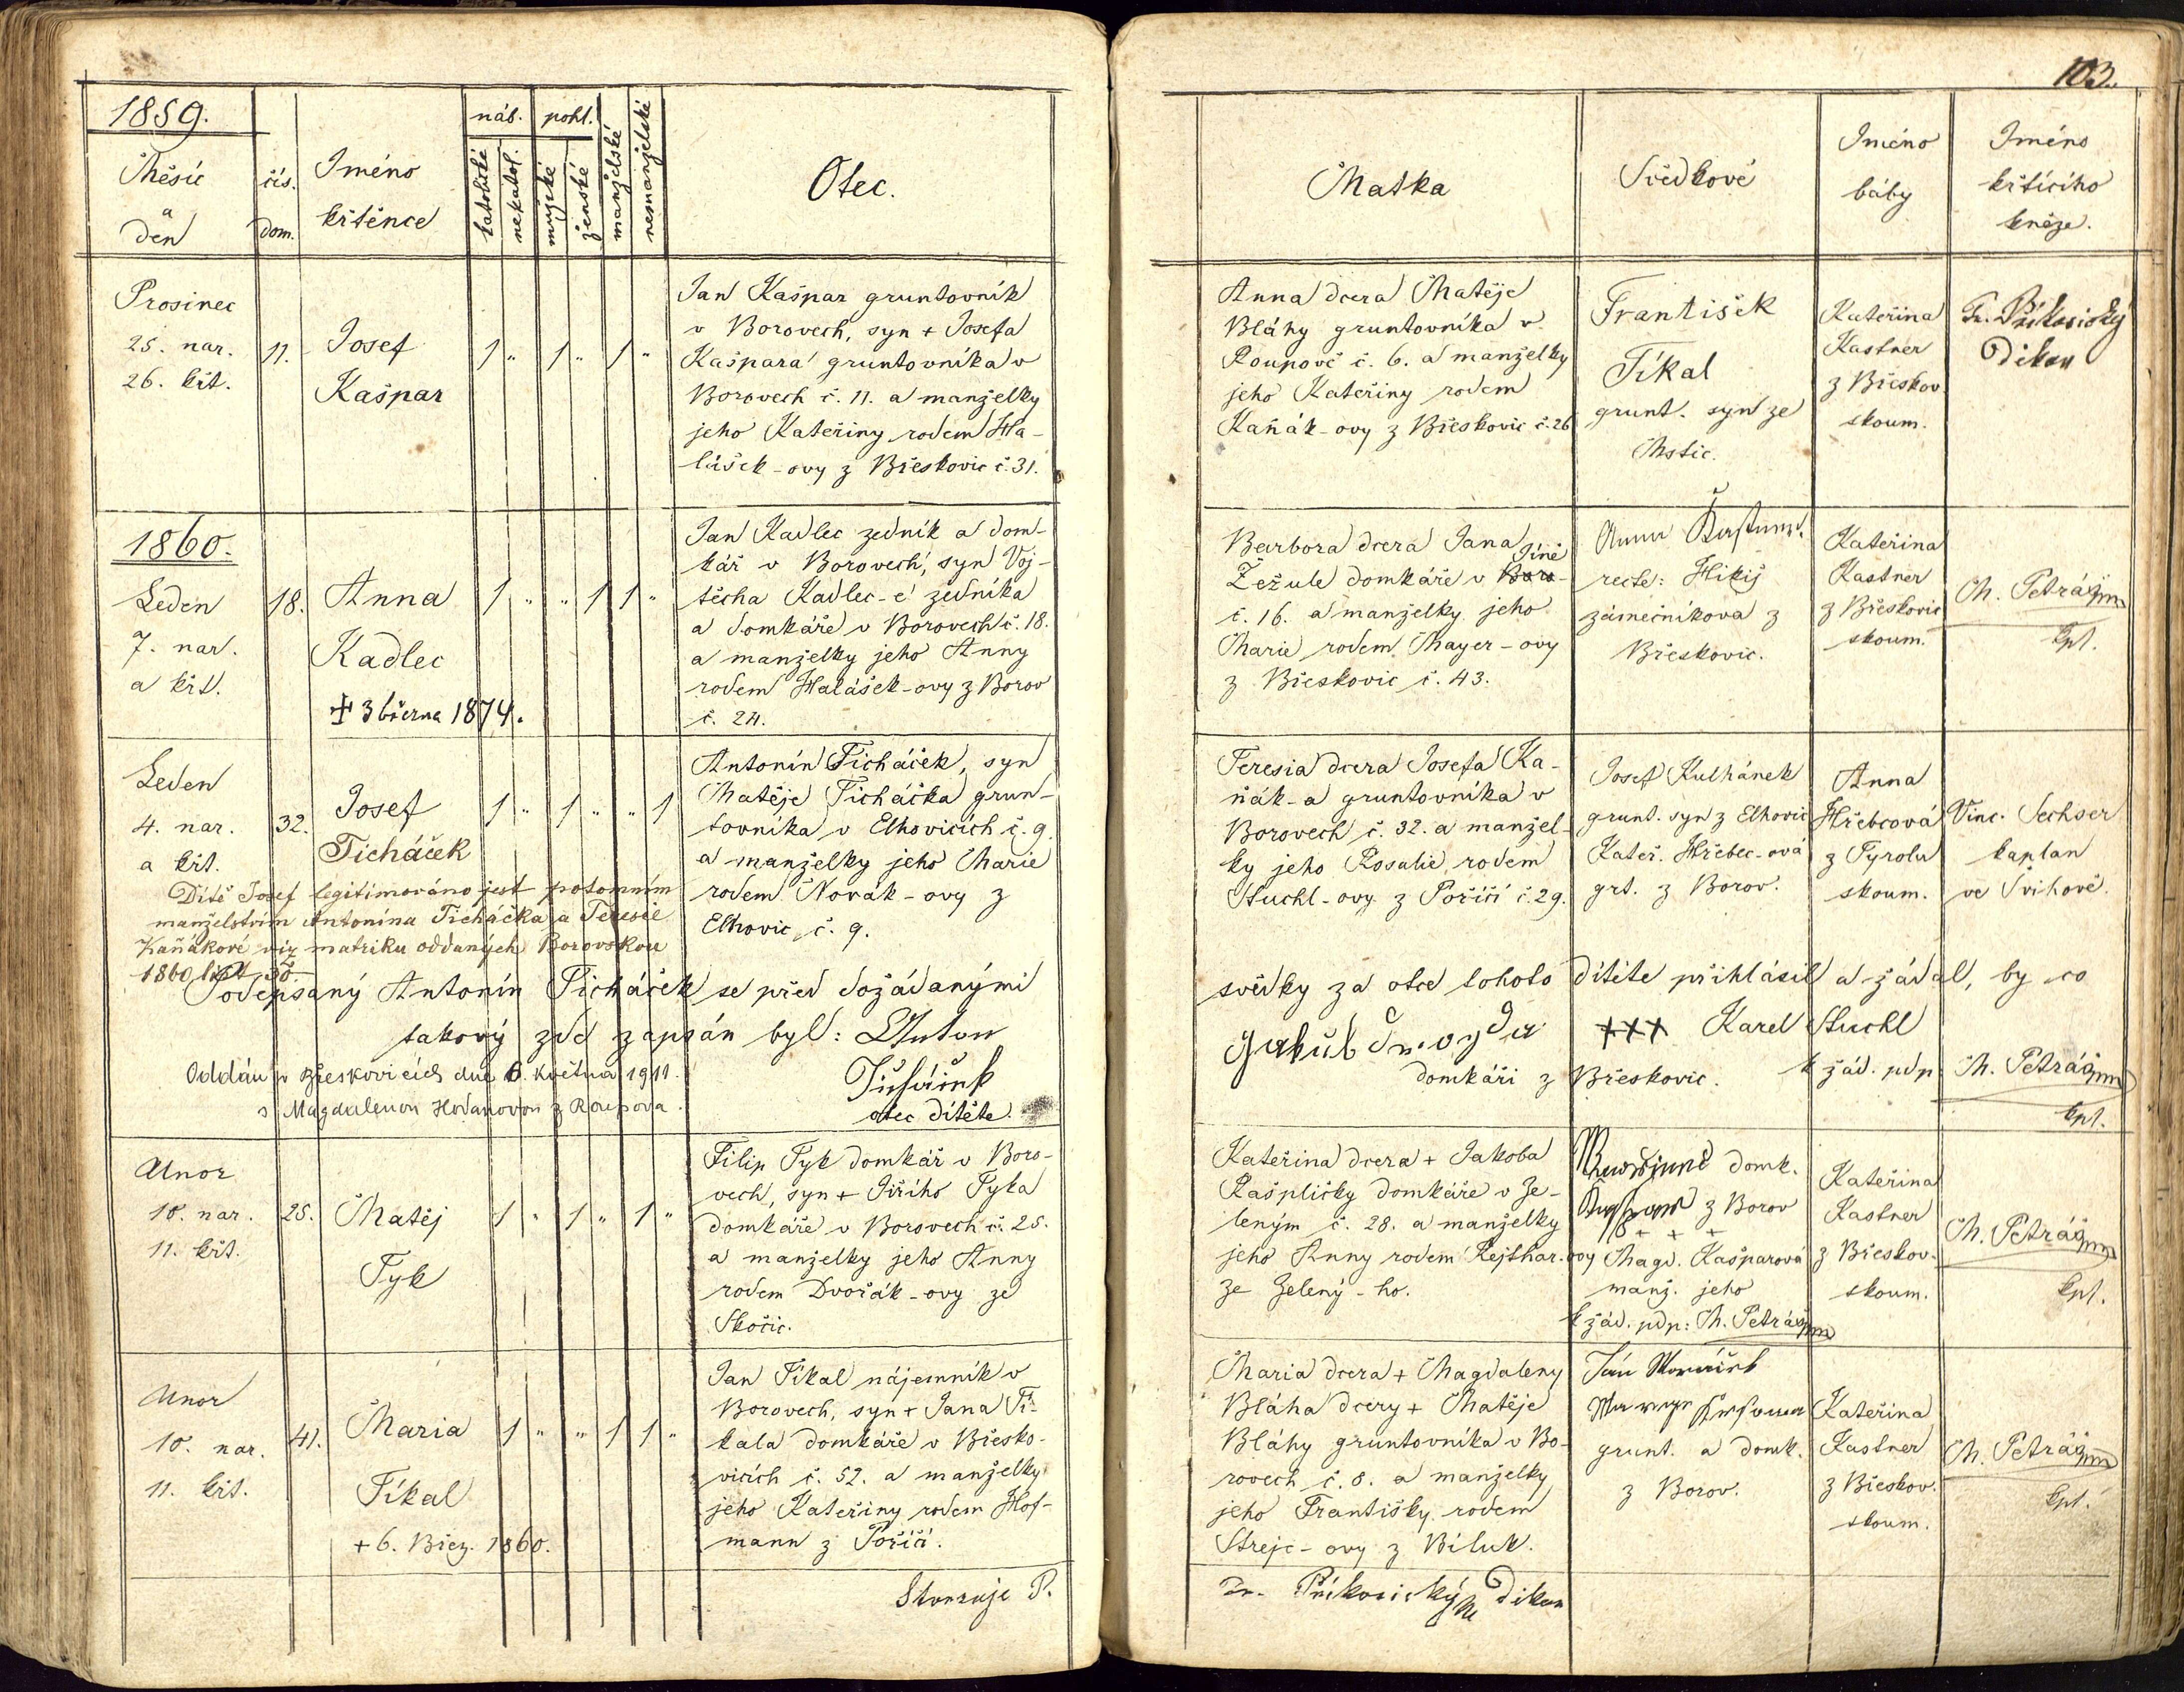 103.
1859.
Měsíc
a
den
čís.
dom.
Iméno
křtěnce
náb.
pohl.
katolické
nekatol.
mužské
ženské
manželské
nemanželské
Otec.
Matka
Svědkové
Iméno
báby
Iméno
křtícího
kněze.
Prosinec
25. nar.
26. křt.
11.
Josef
Kašpar
1 " 1 " 1 "
Jan Kašpar gruntovník
v Borovech, syn + Josefa
Kašpara gruntovníka v
Borovech č. 11. a manželky
jeho Kateřiny rodem Ha-
lášek-ovy z Břeskovic č. 31.
Anna dcera Matěje
Bláhy gruntovníka v
Roupově č. 6. a manželky
jeho Kateřiny rodem
Kaňák-ovy z Břeskovic č. 26
František
Fíkal
grunt. syn ze
Mstic.
Kateřina
Kastner
z Břeskov.
skoum.
Fr. Příkosický
Děkan
1860.
Leden
7. nar.
a křt.
18.
Anna
Kadlec
✝ 3 března 1874.
1 " " 1 1 "
Jan Kadlec zedník a dom-
kář v Borovech, syn Voj-
těcha Kadlec-e zedníka
a domkáře v Borovech č. 18.
a manželky jeho Anny
rodem Halášek-ovy z Borov
č. 24.
Barbora dcera Jana
Jíně
Žežule domkáře v Boro-
č. 16. a manželky jeho
Marie rodem Mayer-ovy
z Břeskovic č. 43.
Anna
recte: Hikiš
zámečníkova z
Břeskovic.
Kateřina
Kastner
z Břeskovic
skoum.
M. Petrášmm
kpl.
Leden
4. nar.
a křt.
32.
Josef
Ticháček
1 " 1 " " 1
Antonín Ticháček, syn
Matěje Ticháčka grun-
tovníka v Elhovicích č. 9.
a manželky jeho Marie
rodem Novák-ovy z
Elhovic č. 9.
Teresia dcera Josefa Ka-
ňák-a gruntovníka v
Borovech č. 32. a manžel-
ky jeho Rosalie rodem
Stuchl-ovy z Poříčí č. 29.
Josef Kulhánek
grunt. syn z Elhovic
Kateř. Hřebec-ová
grt. z Borov.
Anna
Hřebcová
z Tyrolu
skoum.
Vinc. Sechser
kaplan
ve Švihově.
Dítě Josef legitimováno jest potomním
manželstvím Antonína Ticháčka a Teresie
Kaňákové viz matriku oddaných Borovskou
1860 list 30.
Podepsaný Antonín Ticháček se před dožádanými svědky za otce tohoto dítěte přihlásil a žádal, by co
takový zde zapsán byl: Anton
Ticháček
otec dítěte.
Jakub + + + Karel Stuchl
domkáři z Břeskovic. k žád. pdp. M. Petrášmm
kpl.
Oddán v Břeskovicích dne 6. května 1911.
s Magdalenou Hodanovou z Roupova.
Unor
10. nar.
11. křt.
25.
Matěj
Tyk
1 " 1 " 1 "
Filip Tyk domkář v Boro-
vech, syn + Jiřího Tyka
domkáře v Borovech č. 25.
a manželky jeho Anny
rodem Dvořák-ovy ze
Skočic.
Kateřina dcera + Jakoba
Rašpličky domkáře v Ze-
leným č. 28. a manželky
jeho Anny rodem Rejthar-ovy
ze Zelený-ho.
domk.
z Borov
+ + +
Magd. Kašparová
manž. jeho
k žád. pdp: M. Petrášmm
Kateřina
Kastner
z Břeskov.
skoum.
M. Petrášmm
kpl.
Unor
10. nar.
11. křt.
41.
Maria
Fíkal
+ 6. Břez. 1860.
1 " " 1 1 "
Jan Fíkal nájemník v
Borovech, syn + Jana Fí-
kala domkáře v Břesko-
vicích č. 52. a manželky
jeho Kateřiny rodem Hof-
mann z Poříčí.
Maria dcera + Magdaleny
Bláha dcery + Matěje
Bláhy gruntovníka v Bo-
rovech č. 8. a manželky
jeho Františky rodem
Strejc-ovy z Biluk.
Jan
grunt. a domk.
z Borov.
Kateřina
Kastner
z Břeskov.
skoum.
M. Petrášmm
kpl.
Stvrzuje P. Fr. Příkosický Děkan